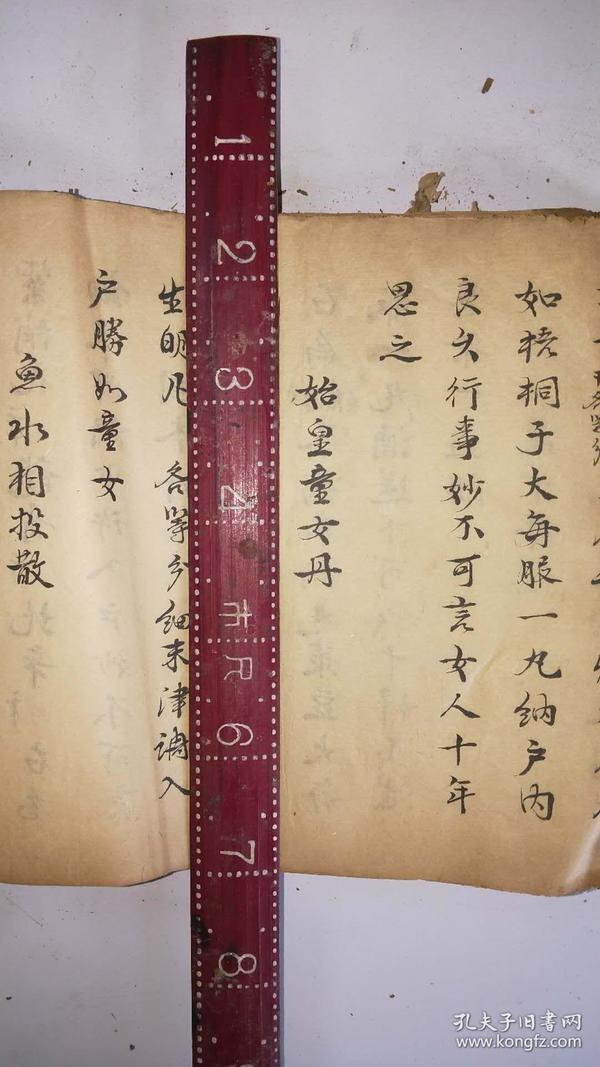 如梧桐子大每服一丸納户内
良久行事妙不可言女人十年
思之
始皇童女丹
生明凡 各等分細末津調入
户勝如童女
魚水相投散
1
2
3
4
市尺
6
7
8
孔夫子旧书网
www.kongfz.com